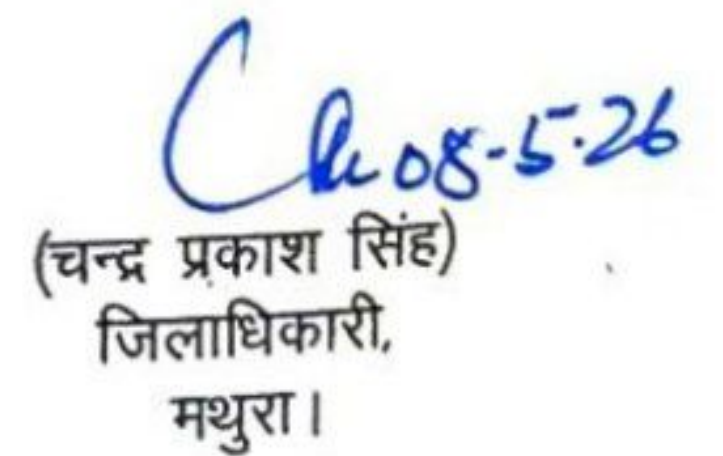 08-5-26
(चन्द्र प्रकाश सिंह)
जिलाधिकारी,
मथुरा।